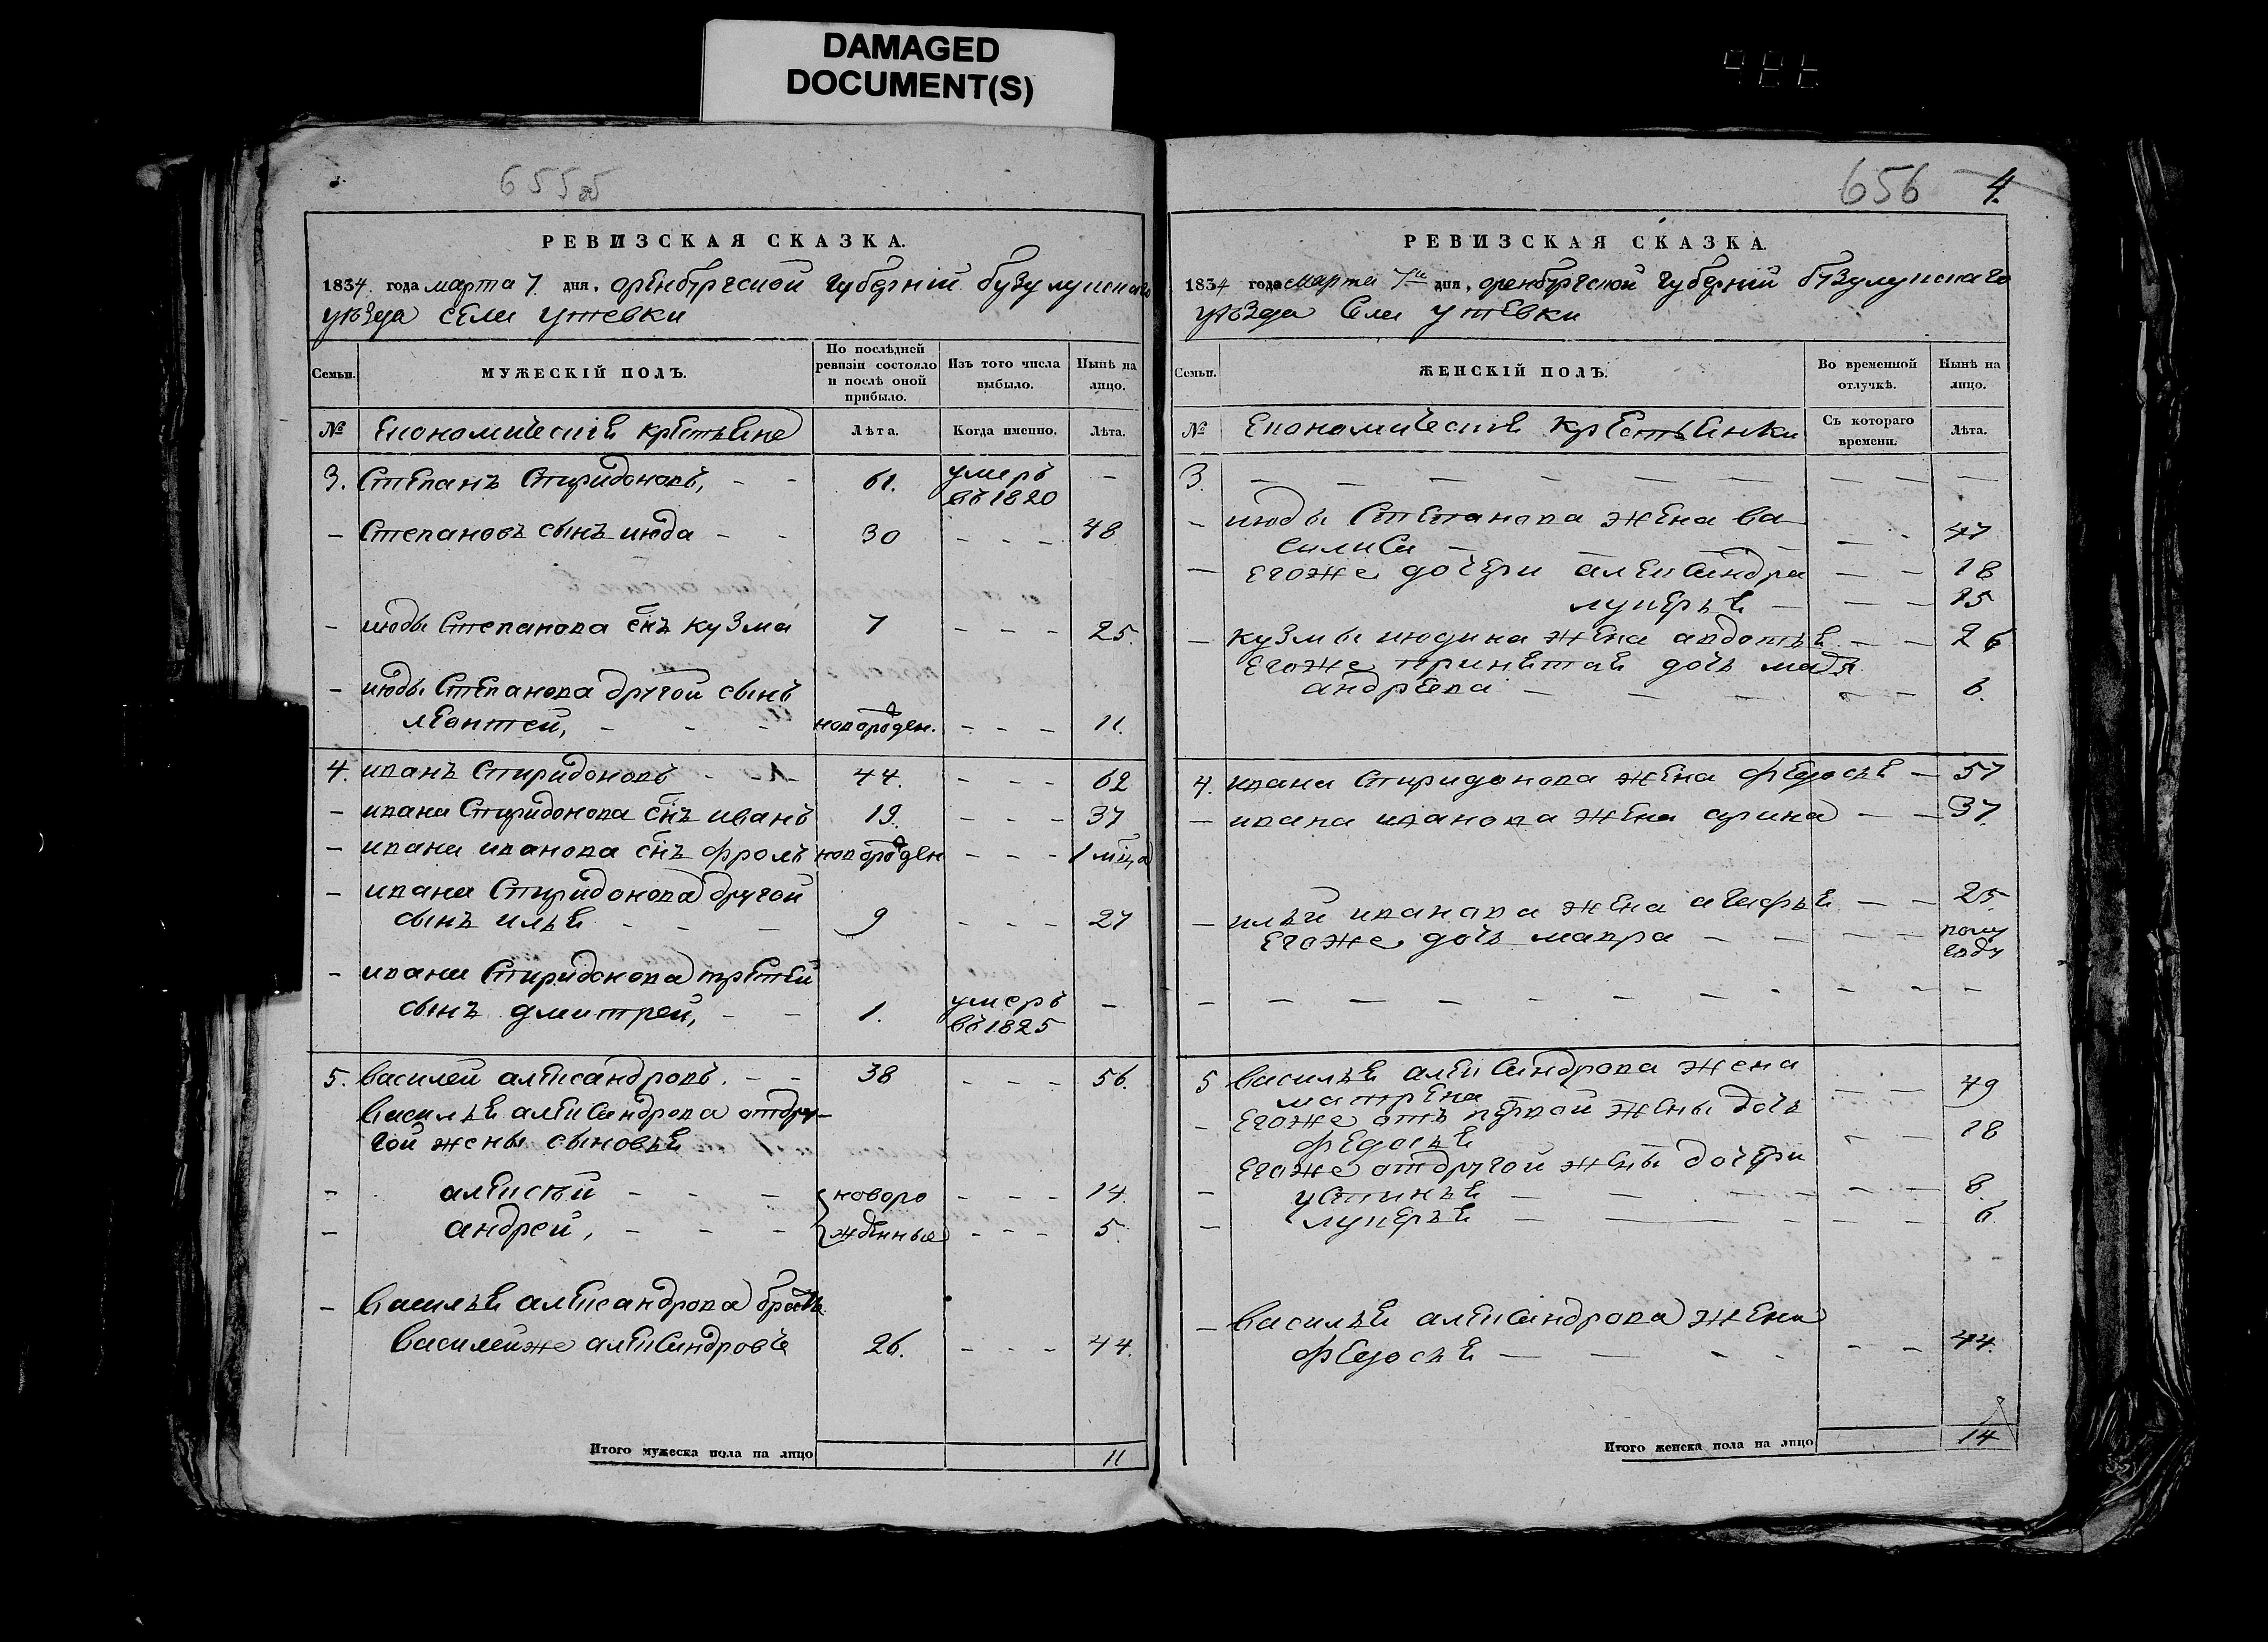 DAMAGED
DOCUMENT(S)
655об
РЕВИЗСКАЯ СКАЗКА.
1834. года марта 7. дня. оренбургской губерніи бузулуцкаго
уѣзда села утевки
Семьи.
МУЖЕСКІЙ ПОЛЪ.
По послѣдней
ревизіи состояло
и послѣ оной
прибыло.
Изъ того числа
выбыло.
Нынѣ на
лицо.
№ Економическіе крестьяне Лѣта. Когда именно. Лѣта.
3. Степанъ Спиридоновъ, - - 61. умеръ въ 1820 -
- Степановъ сынъ июда - - 30 - - - 48
- июды Степанова сн҃ъ кузма 7 - - - 25
- июды Степанова другой сынъ
леонтей, - - - новорожден. - - - 11.
4. иванъ Спиридоновъ - - 44. - - - 62
- ивана Спиридонова сн҃ъ иванъ 19. - - - 37
- ивана иванова сн҃ъ фролъ новорожден - - - 1 мц҃а
- ивана Спиридонова другой
сынъ илья - - - 9 - - - 27
- ивана Спиридонова третей
сынъ дмитрей, - - 1. умеръ въ 1825 -
5. василей александровъ. - - 38 - - - 56.
василья александрова отдру-
гой жены сыновья
- алексѣй - - - новоро - - - 14.
- андрей, - - - жденные - - - 5.
- василья александрова братъ
василейже александровъ 26. - - - 44.
Итого мужеска пола на лицо 11
656 4.
РЕВИЗСКАЯ СКАЗКА.
1834 года марта 7го дня, оренбургской губерніи бузулуцкаго
уѣзда села утевки
Семьи.
ЖЕНСКІЙ ПОЛЪ.
Во временной
отлучкѣ.
Нынѣ на
лицо.
№ Економическіе крестьянки Съ котораго
времени. Лѣта.
3. - - - - - - - - - -
- июды Степанова жена ва-
силиса - - - - - - 47
- егоже дочери александра - - 18
лукерья - - - 15
- кузмы июдина жена авдотья - - 26
егоже принятая дочь
андреева - - - - - 6.
4. ивана Спиридонова жена федосья - 57
- ивана иванова жена арина - - 37.
- ильи иванова жена агафья - - 25
егоже дочь мавра - - - - полу
году
- - - - - - - - - - - -
5 василья александрова жена
матрена - - - 49
- егоже отъ первой жены дочь
федосья - - 18
егоже отдругой жены дочери
- устинья - - - - - - 8.
- лукерья - - - - - - 6.
- василья александрова жена
федосья - - - - - - 44.
Итого женска пола на лицо 14